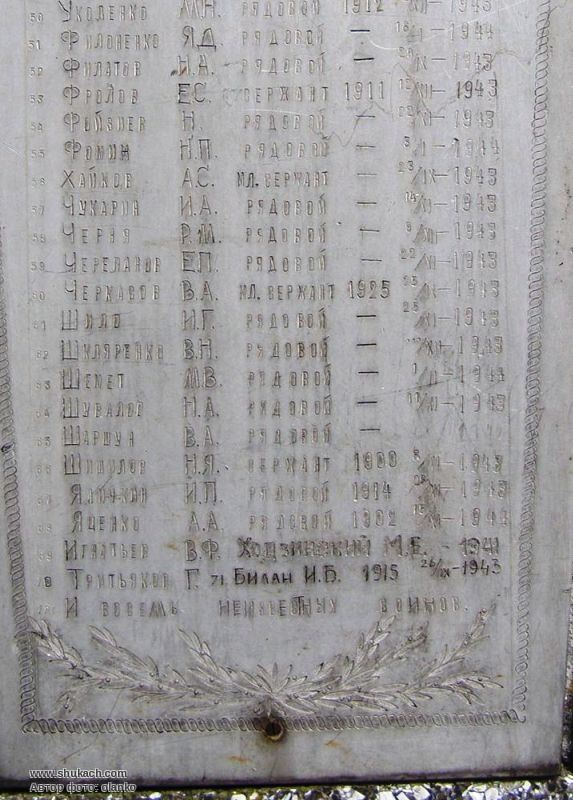 50 Уколенко М.Н. рядовой 1912 XII-1943
51 Филоненко Я.Д. рядовой — 1944
52 Филатов И.А. рядовой — 1943
53 Фролов Е.С. сержант 1911 1943
54 Фойзиев Н. рядовой — 1943
55 Фомин Н.П. рядовой — 3/I-1944
56 Хайков А.С. мл. сержант — 23/IX-1943
57 Чукарин И.А. рядовой — 14/XI-1943
58 Черня Р.М. рядовой — 1943
59 Черепанов Е.П. рядовой — 22/XI-1943
60 Черкасов В.А. мл. сержант 1925 23/XI-1943
61 Шило И.Г. рядовой — 25/XI-1943
62 Шкляренко В.Н. рядовой — 1943
63 Шемет М.В. рядовой — 1944
64 Шувалов Н.А. рядовой — 1943
65 Шаршун В.А. рядовой —
66 Шипулов Н.Я. сержант 1943
67 И.П. рядовой 1914 1943
68 Яценко А.А. рядовой 1902
69 Игнатьев В.Ф. Ходзинский М.Е. - 1941
70 Третьяков Г. 71. Билан И.Б. 1915 26/IX-1943
И восемь неизвестных воинов.
www.shukach.com
Автор фото: olanko